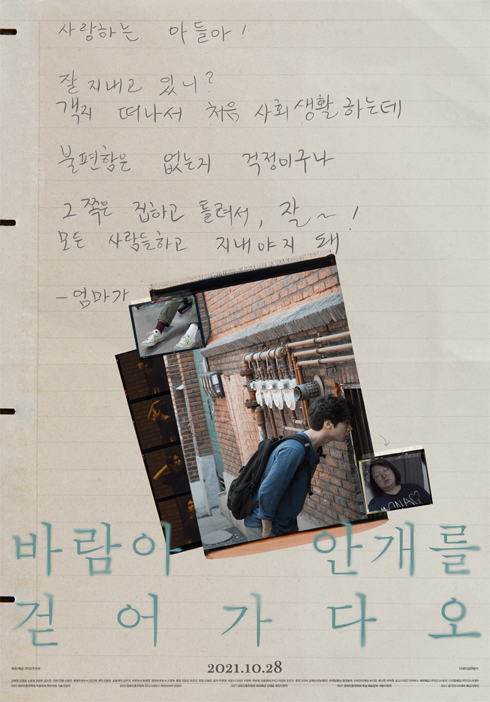 사랑하는 아들아!
잘 지내고 있니?
객지 떠나서 처음 사회생활하는데
불편함은 없는지 걱정이구나
그쪽은 집하고 틀려서, 잘~!
모든 사람들하고 지내야지 돼
-엄마가
바람아 안개를
걷어가다오
2021.10.28